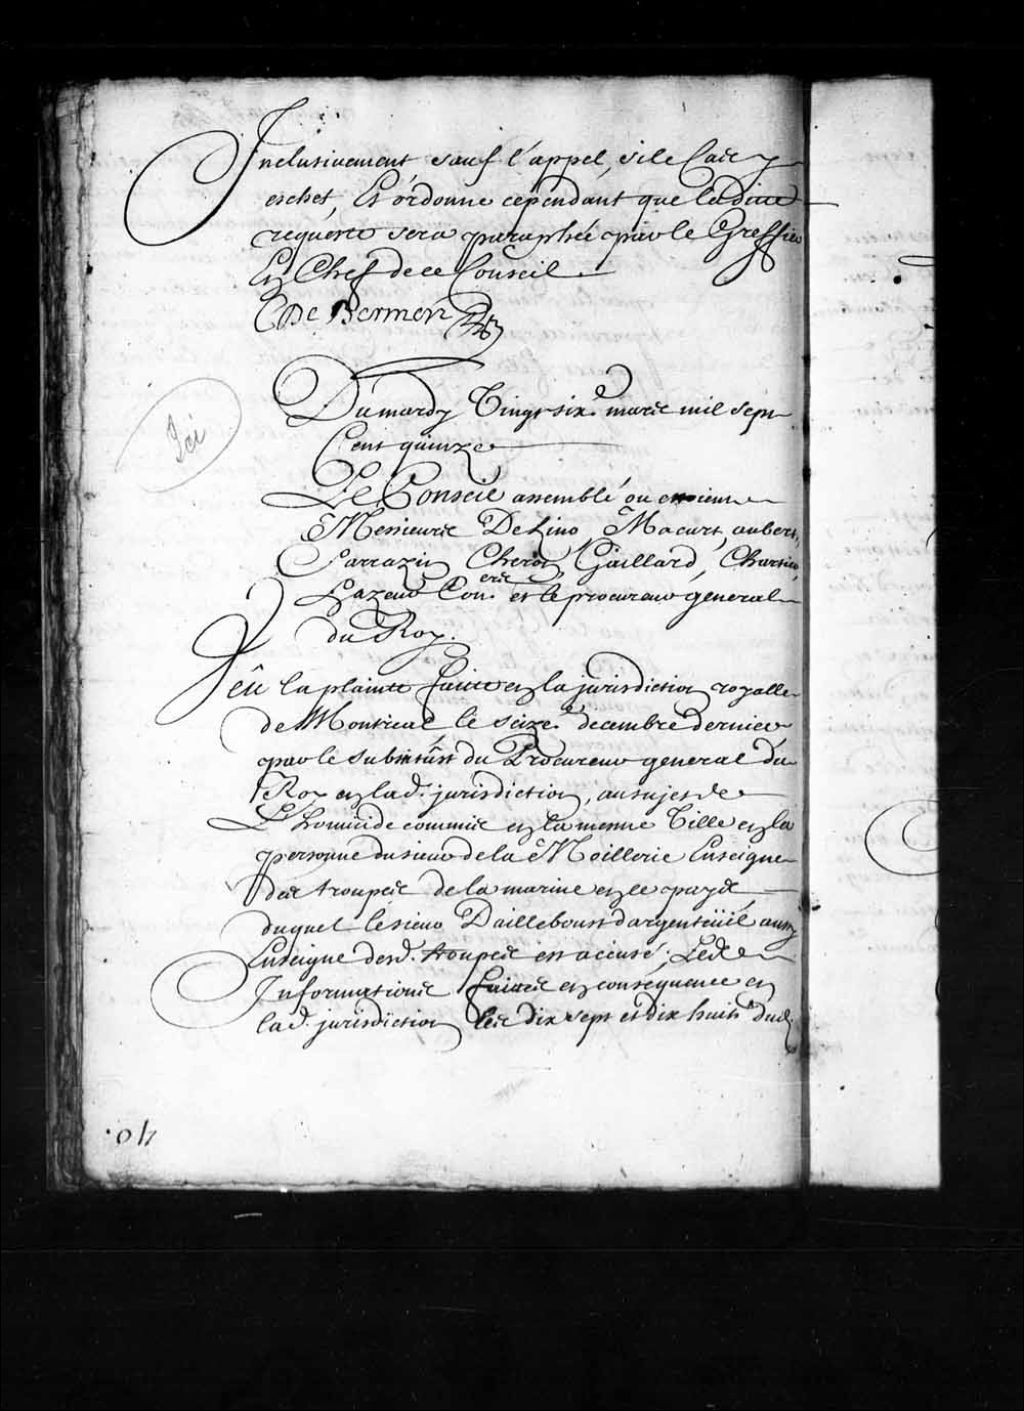 Inclusivement sauf l'appel, sile Cas y
eschet, Et ordonne cependant que laditte
requeste sera paraphée par le Greffier
En Chef de ce Conseil
C De Bermen
Du mardy Vingt six.e mars mil sept
Cent quinze
Ici
Le Conseil assemblé ou estoient
Messieurs De Lino, Macart, aubert,
Sarrazin Cheron, Gaillard,
Lazeur Con.ers et le procureur general
du Roy.
Veû la plainte faitte en la jurisdiction royalle
de Montreal le seize.e decembre dernier
par le substitut du Procureur general du
Roy en lad. jurisdiction, au sujet de
L'homicide commis en la mesme Ville en la
personne du sieur de la Moillerie Enseigne
des troupes de la marine en ce pays
duquel le sieur Dailleboust dargenteüil aussy
Enseigne desd. troupes est accusé; Les
Informations faittes en consequence en
lad. jurisdiction les dix sept et dix huit dud.
40.